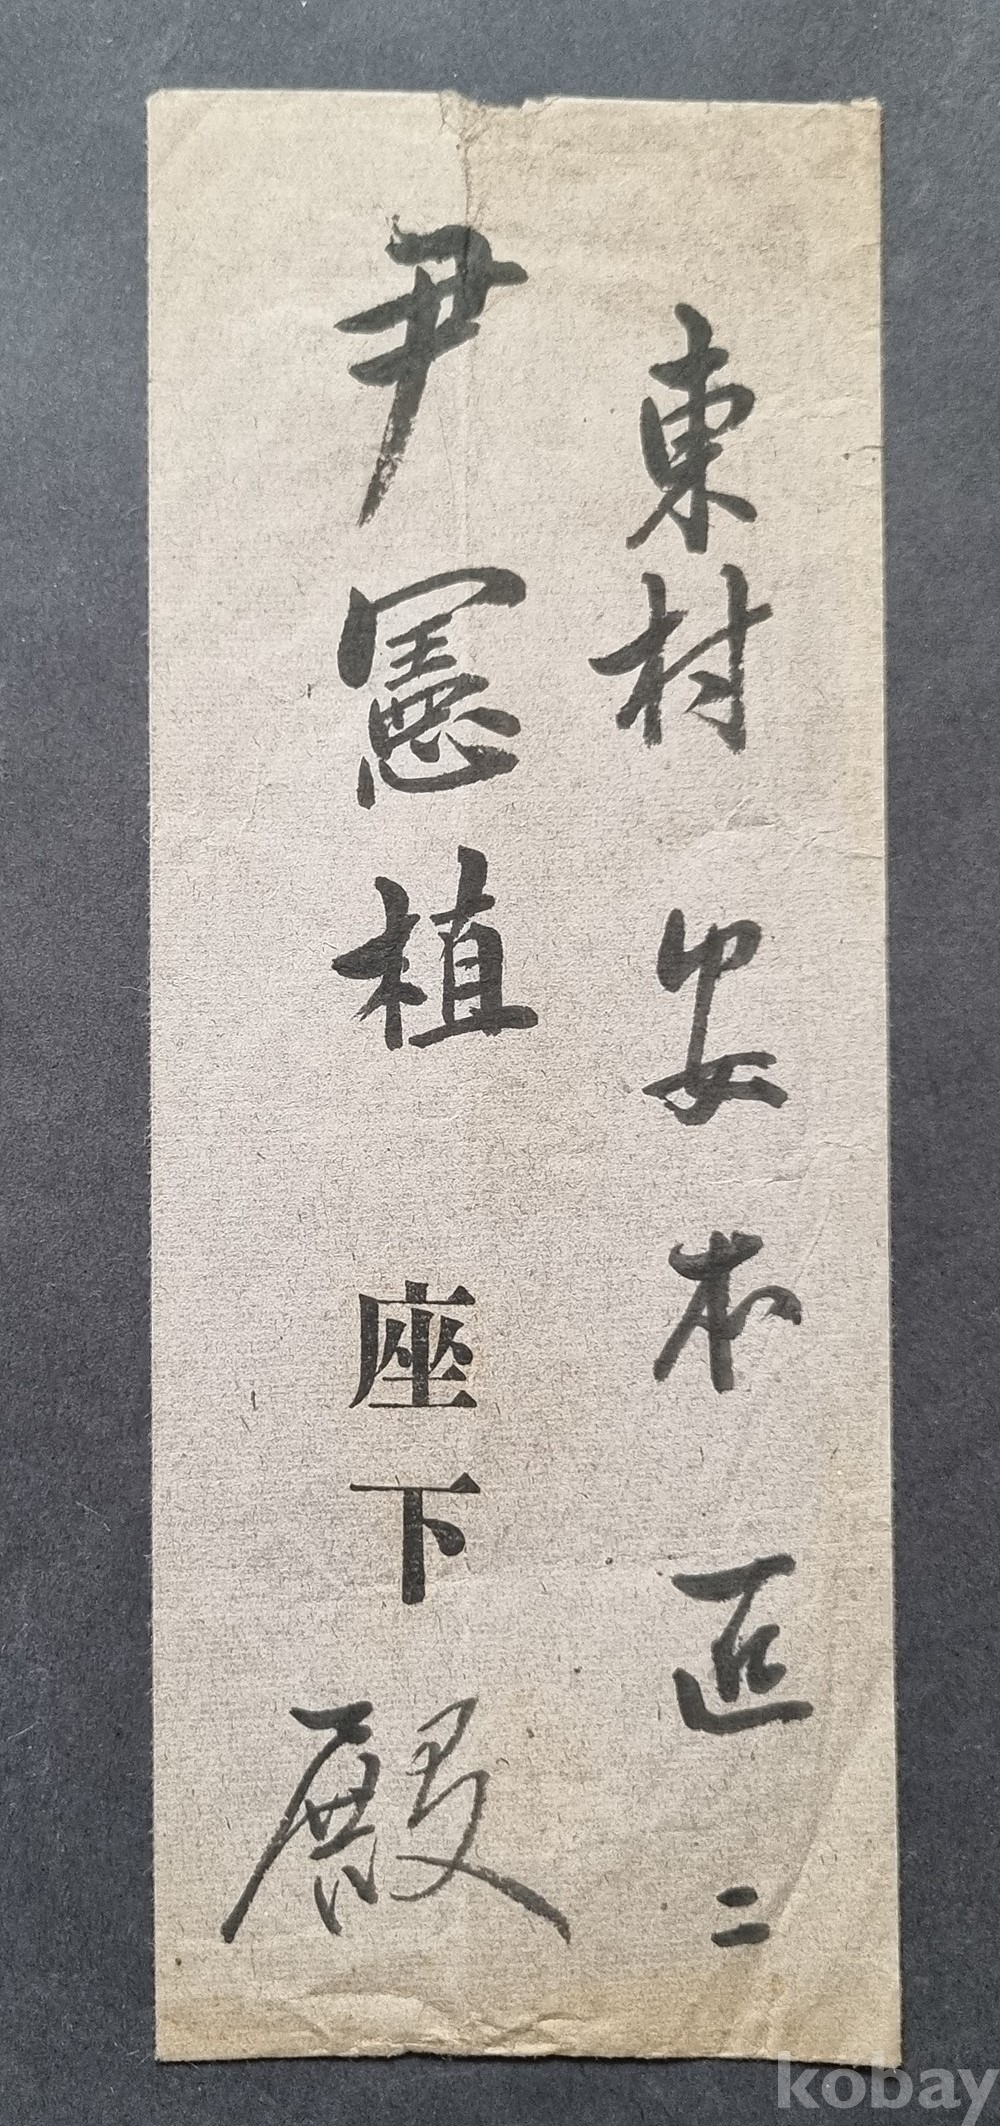 東村 安本 匠 二
尹憲植 座下 殿
kobay